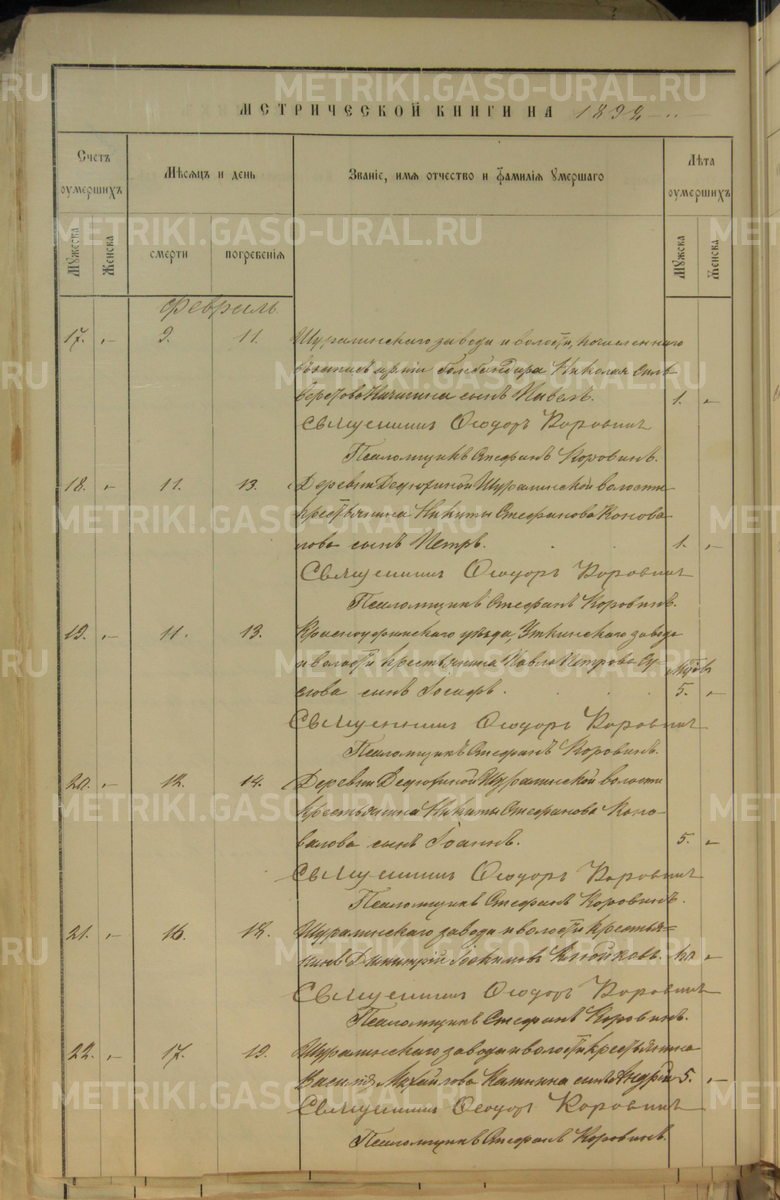 METRIKI.GASO-URAL.RU
МЕТРИЧЕСКОЙ КНИГИ НА 1892
Счетъ умершихъ
Мѣсяцъ и день
Званіе, имя, отчество и фамилія умершаго
Лѣта умершихъ
Мужеска
Женска
смерти
погребенія
Мужеска
Женска
Февраль
17. „ 9. 11. Шуралинскаго завода и волости,
бомбандира Николая Силь-
верстова сынъ Павелъ. 1. „
Священникъ Ѳеодоръ Коровинъ
Псаломщикъ Стефанъ Коровинъ.
18. „ 11. 13. Деревни Шуралинской волости
крестьянина Никиты Стефанова Конова
лова сынъ Петръ. 1. „
Священникъ Ѳеодоръ Коровинъ
Псаломщикъ Стефанъ Коровинъ.
19. „ 11. 13. Красноуфимскаго уѣзда, Уткинскаго завода
и волости крестьянина Павла Петрова Су
слова сынъ Іосифъ. 5. „
Священникъ Ѳеодоръ Коровинъ
Псаломщикъ Стефанъ Коровинъ.
20. „ 12. 14. Деревни Шуралинской волости
крестьянина Никиты Стефанова Коно-
валова сынъ Іоаннъ. 5. „
Священникъ Ѳеодоръ Коровинъ
Псаломщикъ Стефанъ Коровинъ.
21. „ 16. 18. Шуралинскаго завода и волости крестья-
нинъ Димитрій Іоакимовъ „
Священникъ Ѳеодоръ Коровинъ
Псаломщикъ Стефанъ Коровинъ.
22. „ 17. 19. Шуралинскаго завода и волости крестьянина
Василія Михайлова сынъ Андрей 5. „
Священникъ Ѳеодоръ Коровинъ
Псаломщикъ Стефанъ Коровинъ.